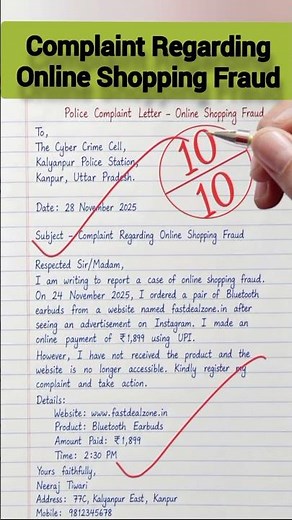 Complaint Regarding
Online Shopping Fraud
Police Complaint Letter - Online Shopping Fraud
To,
The Cyber Crime Cell,
Kalyanpur Police Station,
Kanpur, Uttar Pradesh.
10
10
Date: 28 November 2025
Subject - Complaint Regarding Online Shopping Fraud
Respected Sir/Madam,
I am writing to report a case of online shopping fraud.
On 24 November 2025, I ordered a pair of Bluetooth
earbuds from a website named fastdealzone.in after
seeing an advertisement on Instagram. I made an
online payment of ₹1,899 using UPI.
However, I have not received the product and the
website is no longer accessible. Kindly register my
complaint and take action.
Details:
Website: www.fastdealzone.in
Product: Bluetooth Earbuds
Amount Paid: ₹1,899
Time: 2:30 PM
Yours faithfully,
Neeraj Tiwari
Address: 77C, Kalyanpur East, Kanpur
Mobile: 9812345678